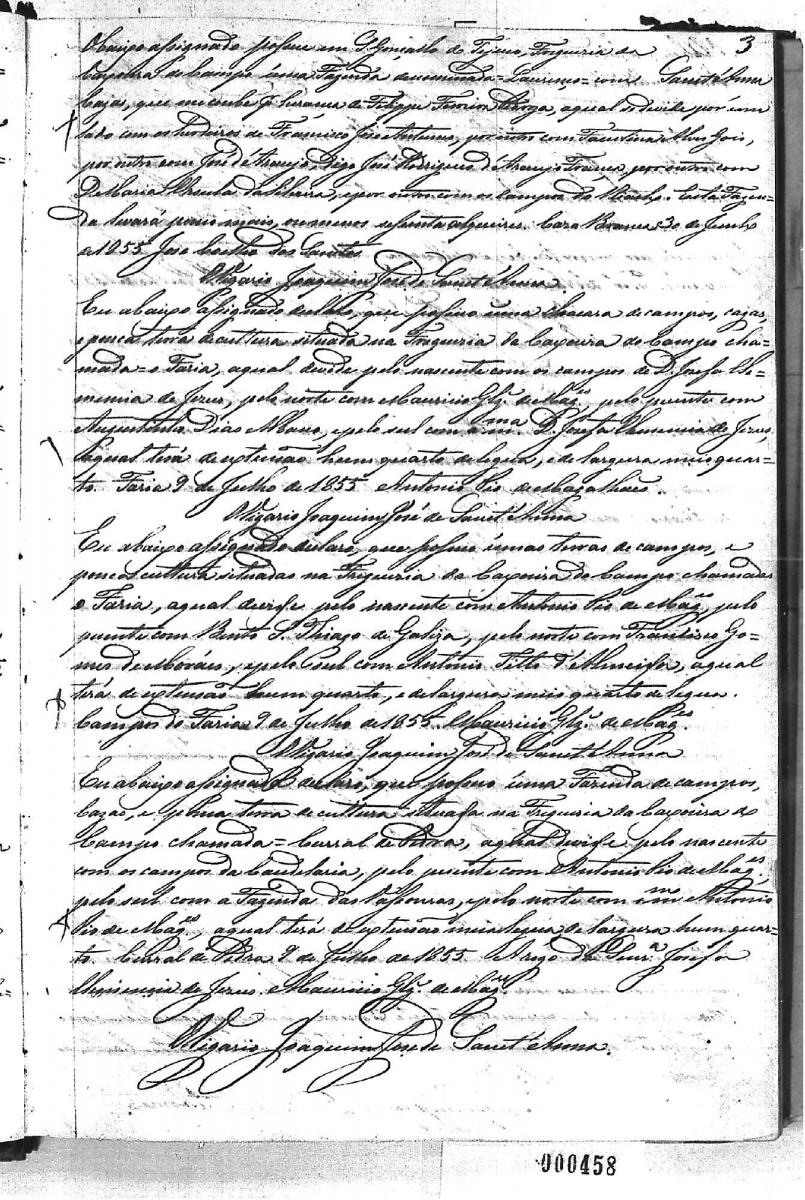 3
O baixo assignado possue em S. Gonçallo do Tejuco, Freguesia da
Caxoeira do Campo uma Fazenda denominada = = com Sanct'Anna
cazas, que me coube p.r herança de Felippe a qual se divide por um
lado com os herdeiros de Francisco José Antunes, por outro com Faustina Alves Gois,
por outro com José d'Araujo, digo José Rodrigues d'Araujo Franca, por outro com
D. Maria Ursula e por outro com os campos do Riacho. Esta Fazen-
da levará pouco mais, ou menos sessenta alqueires. Caza Branca 30 de Junho
de 1855 José Coelho dos Santos
O Vigario Joaquim José de Sanct'Anna.
Eu abaixo assignado declaro, que possuo uma chacara de campos, cazas,
e pouca terra de cultura situada na Fregueria da Caxoeira do Campo cha-
mada = o Faria, a qual devide pelo nascente com os campos de D. Josefa Cle-
mencia de Jezus, pelo norte com Mauricio Glz. de Mag.es pelo puente com
Dias e pelo sul com a m.ma D. Josefa Clemencia de Jezus,
a qual terá de extensão hum quarto de legua, e de largura meio quar-
to. Faria 9 de Julho de 1855 Antonio Pio de Magalhães.
O Vigario Joaquim José de Sanct'Anna
Eu abaixo assignado declaro, que possuo umas terras de campos, e
poucas cultura situadas na Fregueria da Caxoeira do Campo chamadas
o Faria, a qual devide pelo nascente com Antonio Pio de Mag.es, pelo
puente com Bento S. Thiago de Galiza, pelo norte com Francisco Go-
mes de Moráes, e pelo sul com Antonio Felbo d'Almeida, a qual
terá de extensão hum quarto, e de largura meio quarto de legua.
Campos do Faria 9 de Julho de 1855. Mauricio Glz. de Mag.es
O Vigario Joaquim José de Sanct'Anna
Eu abaixo assignado declaro, que possuo uma Fazenda de campos,
cazas, e pouca terra de cultura situada na Fregueria da Caxoeira do
Campo chamada = Curral de Pedra, a qual devide pelo nascente
com os campos da Caudelaria, pelo puente com Antonio Pio de Mag.es,
pelo sul com a Fazenda das Vassouras, e pelo norte com o m.mo Antonio
Pio de Mag.es, a qual terá de extensão meia legua de largura hum quar-
to. Curral de Pedra 9 de Julho de 1855. A rogo da Senr.a Josefa
Clemencia de Jezus. Mauricio Glz. de Mag.es
O Vigario Joaquim José de Sanct'Anna.
000458